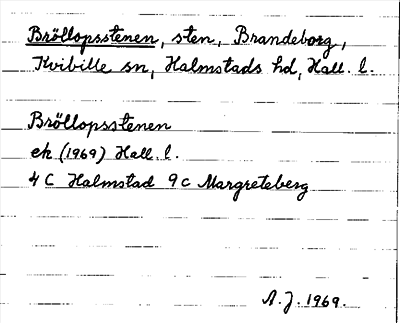 Bröllopsstenen, sten, Brandeborg,
Kvibille sn, Halmstads hd, Hall. l.
Bröllopsstenen
ek (1969) Hall. l.
4 C Halmstad 9 c Margreteberg
A. J. 1969.